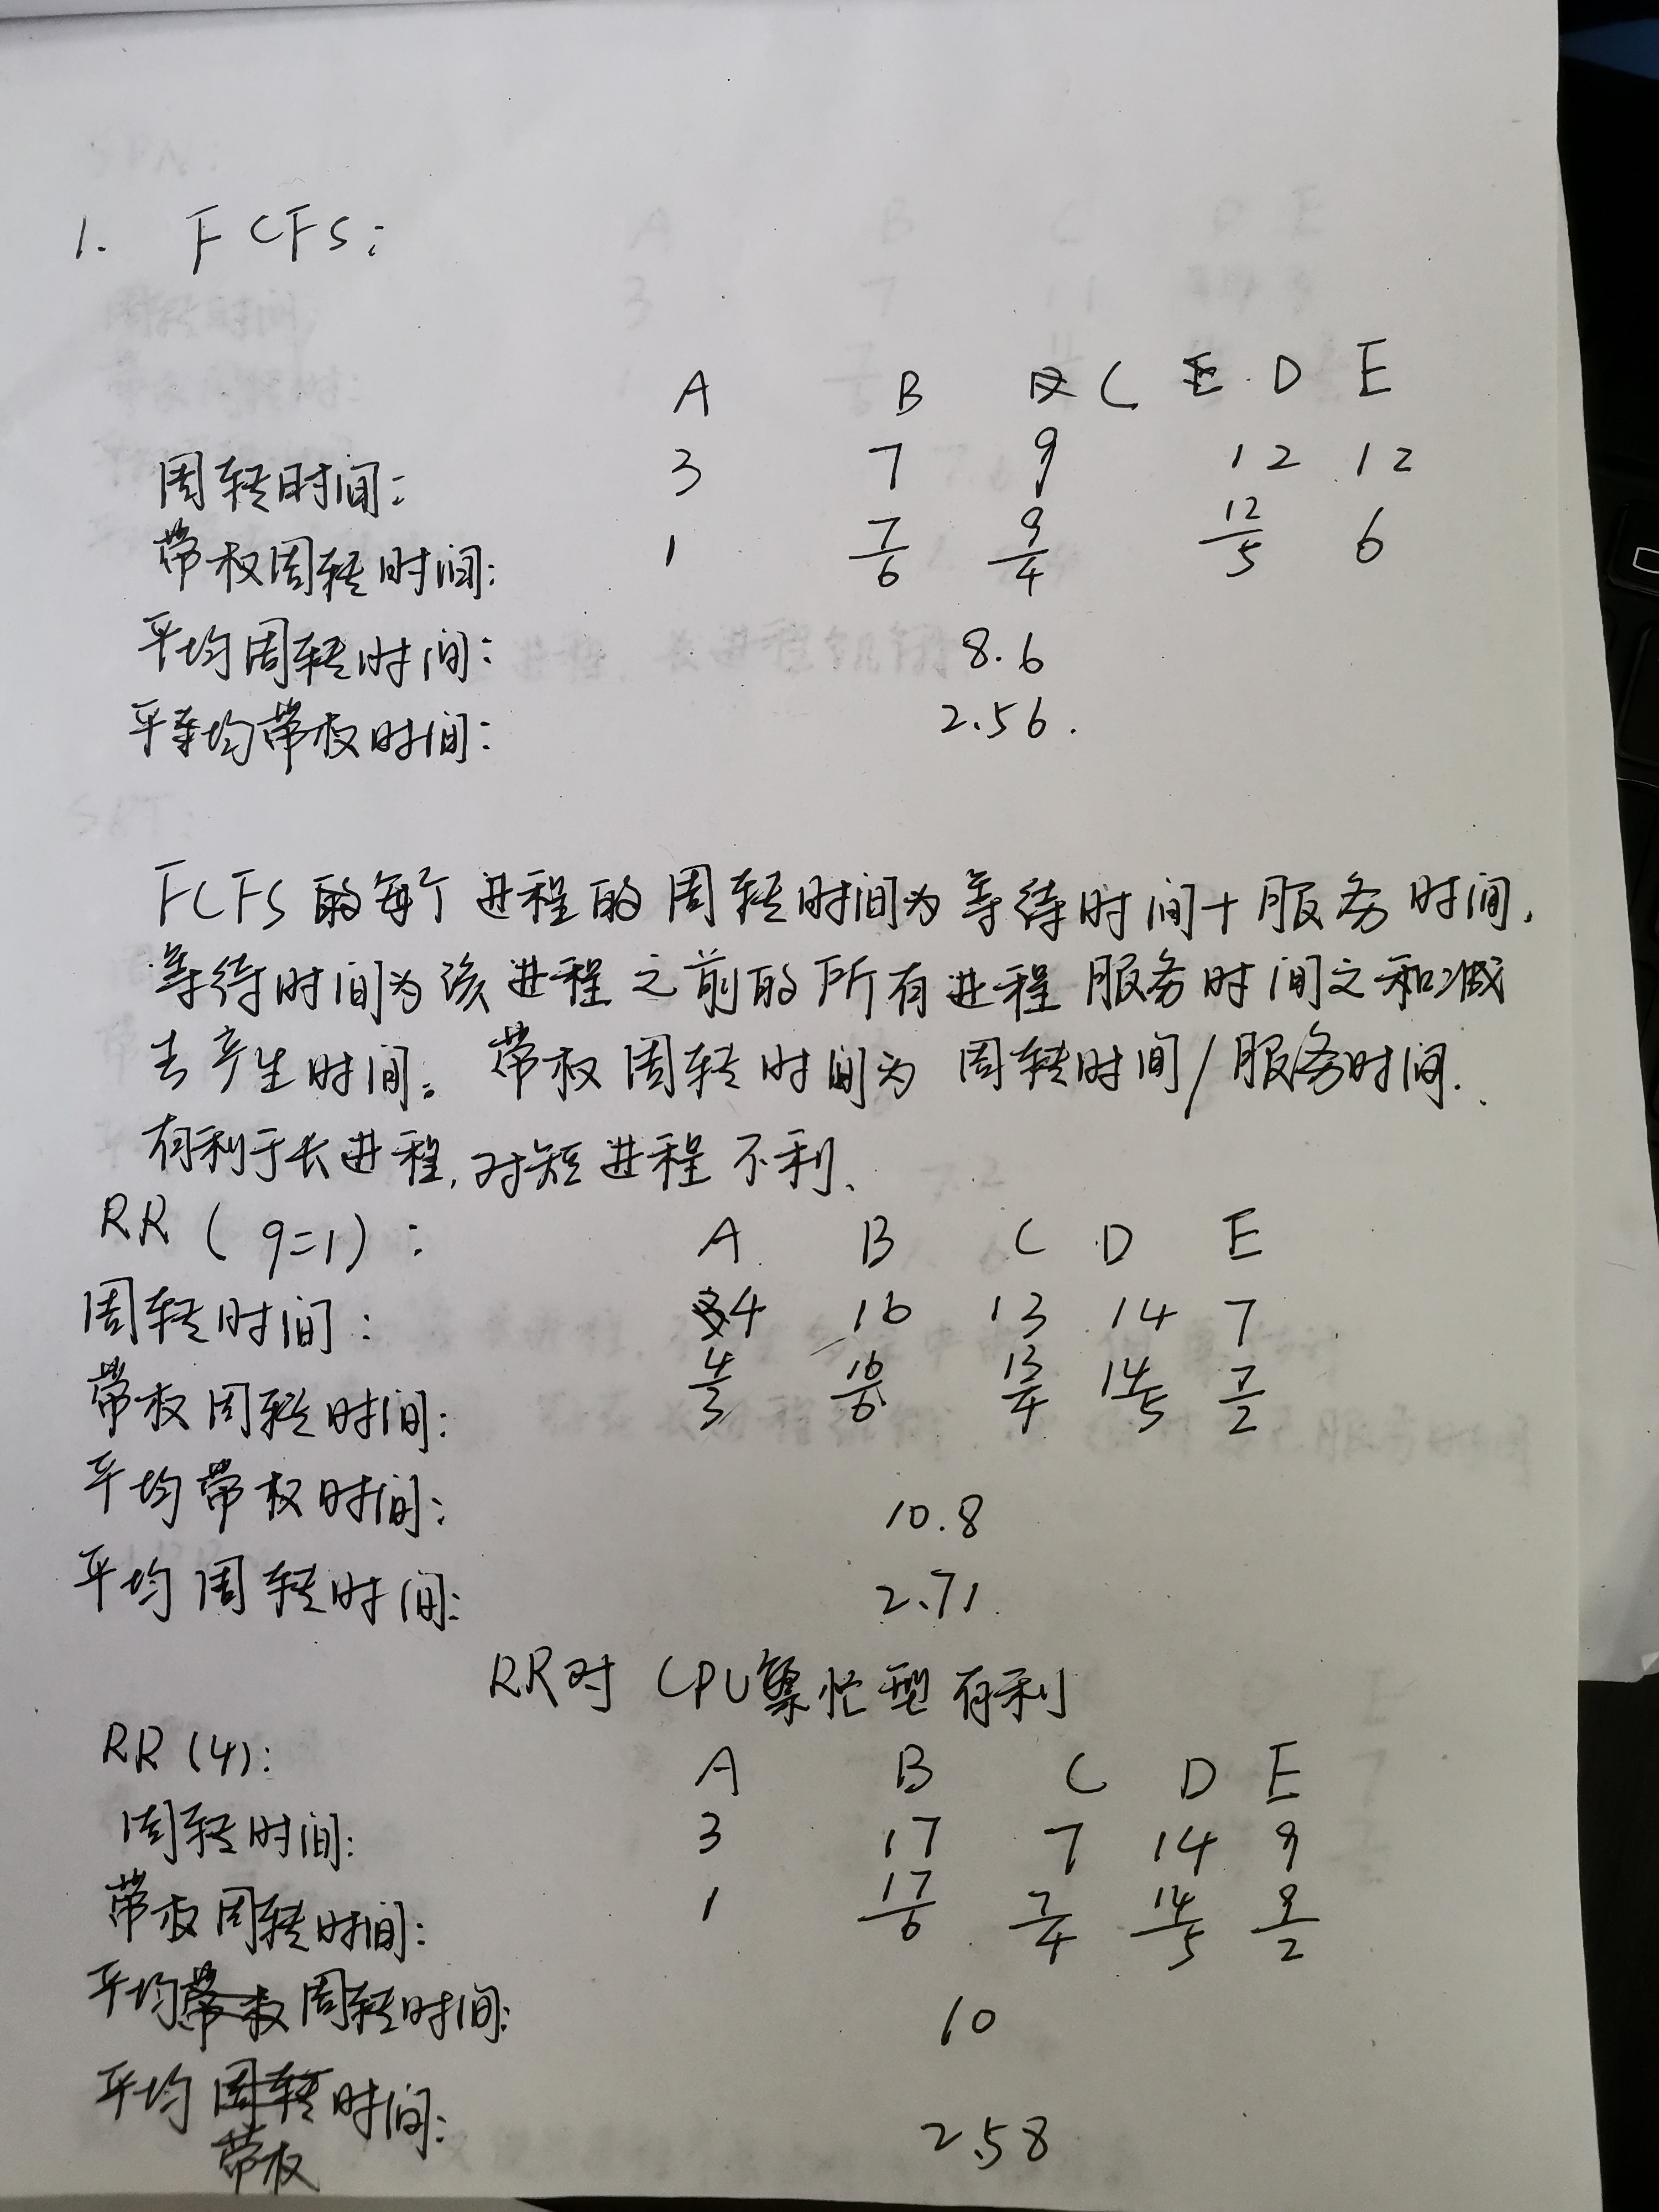 1. FCFS:
A B C D E
周转时间: 3 7 9 12 12
带权周转时间: 1 7/6 9/4 12/5 6
平均周转时间: 8.6
平均带权时间: 2.56.
FCFS的每个进程的周转时间为等待时间+服务时间,
等待时间为该进程之前的所有进程服务时间之和减
去产生时间。带权周转时间为周转时间/服务时间.
有利于长进程,对短进程不利.
RR(q=1): A B C D E
周转时间: 4 16 13 14 7
带权周转时间: 4/3 16/6 13/4 14/5 7/2
平均带权时间: 10.8
平均周转时间: 2.71
RR对CPU繁忙型有利
RR(4): A B C D E
周转时间: 3 17 7 14 9
带权周转时间: 1 17/6 7/4 14/5 9/2
平均周转时间: 10
平均带权时间: 2.58